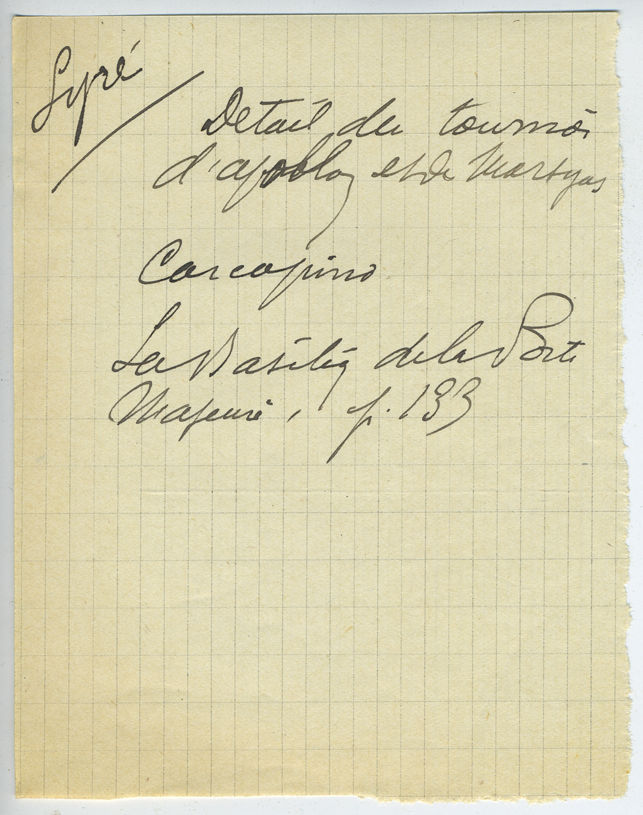 Lyre
Detail du tournoi
d'apollon et de Marsyas
Carcopino
La Basiliq de la Porte
Majeure, p. 133